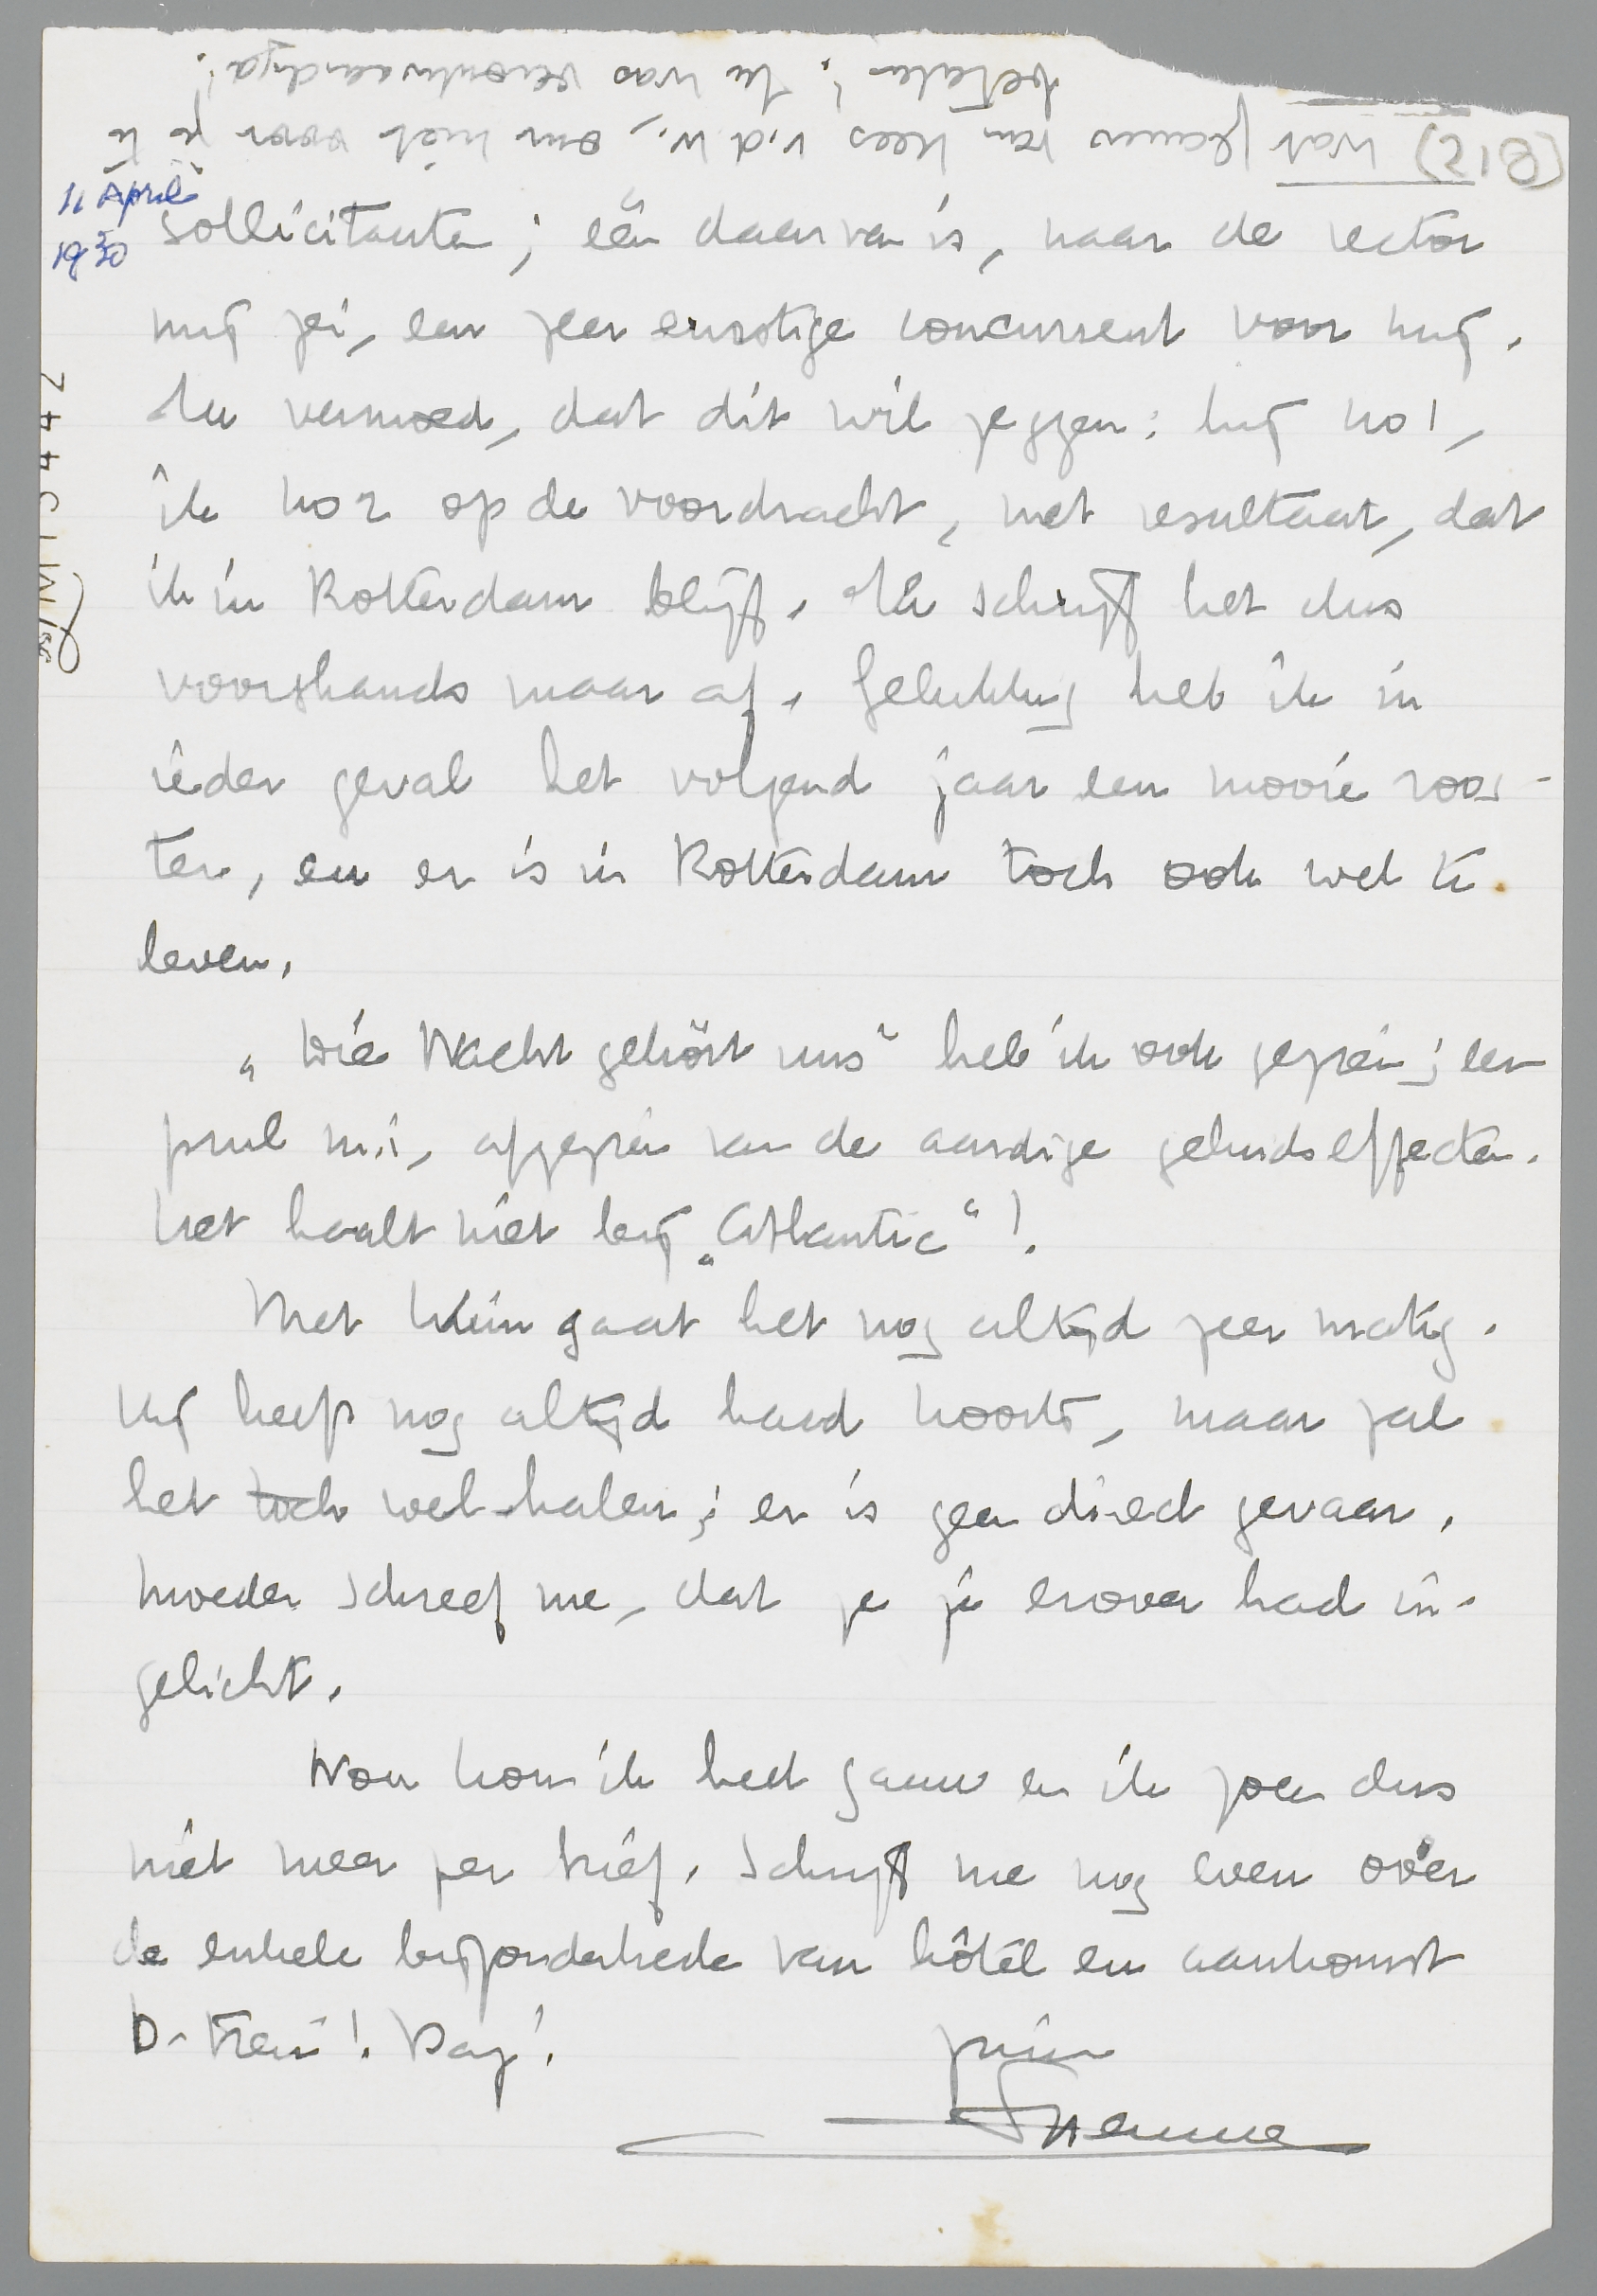 (B12) Wat flauw van Kees v.d.W., om niet voor je te
betalen! Ik was verontwaardigd!
11 April
1930
sollicitanten; één daarvan is, naar de rector
mij zei, een zeer ernstige concurrent voor mij.
Ik vermoed, dat dit wil zeggen: hij no 1,
ik no 2 op de voordracht, met resultaat, dat
ik in Rotterdam blijf. Ik schrijf het dus
voorshands maar af. Gelukkig heb ik in
ieder geval het volgend jaar een mooie roos-
ter, en er is in Rotterdam toch ook wel te
leven.
„Die Nacht gehört uns" heb ik ook gezien; een
prul m.i., afgezien van de aardige geluidseffecten.
Het haalt niet bij „Atlantic"!
Met Wim gaat het nog altijd zeer matig.
Hij heeft nog altijd hard koorts, maar zal
het toch wel halen; er is geen direct gevaar.
Moeder schreef me, dat ze je erover had in-
gelicht.
Nou kom ik heel gauw en ik zoen dus
niet meer per brief. Schrijf me nog even over
de enkele bijzonderheden van hôtel en aankomst
D-trein! Dag!
M 15442